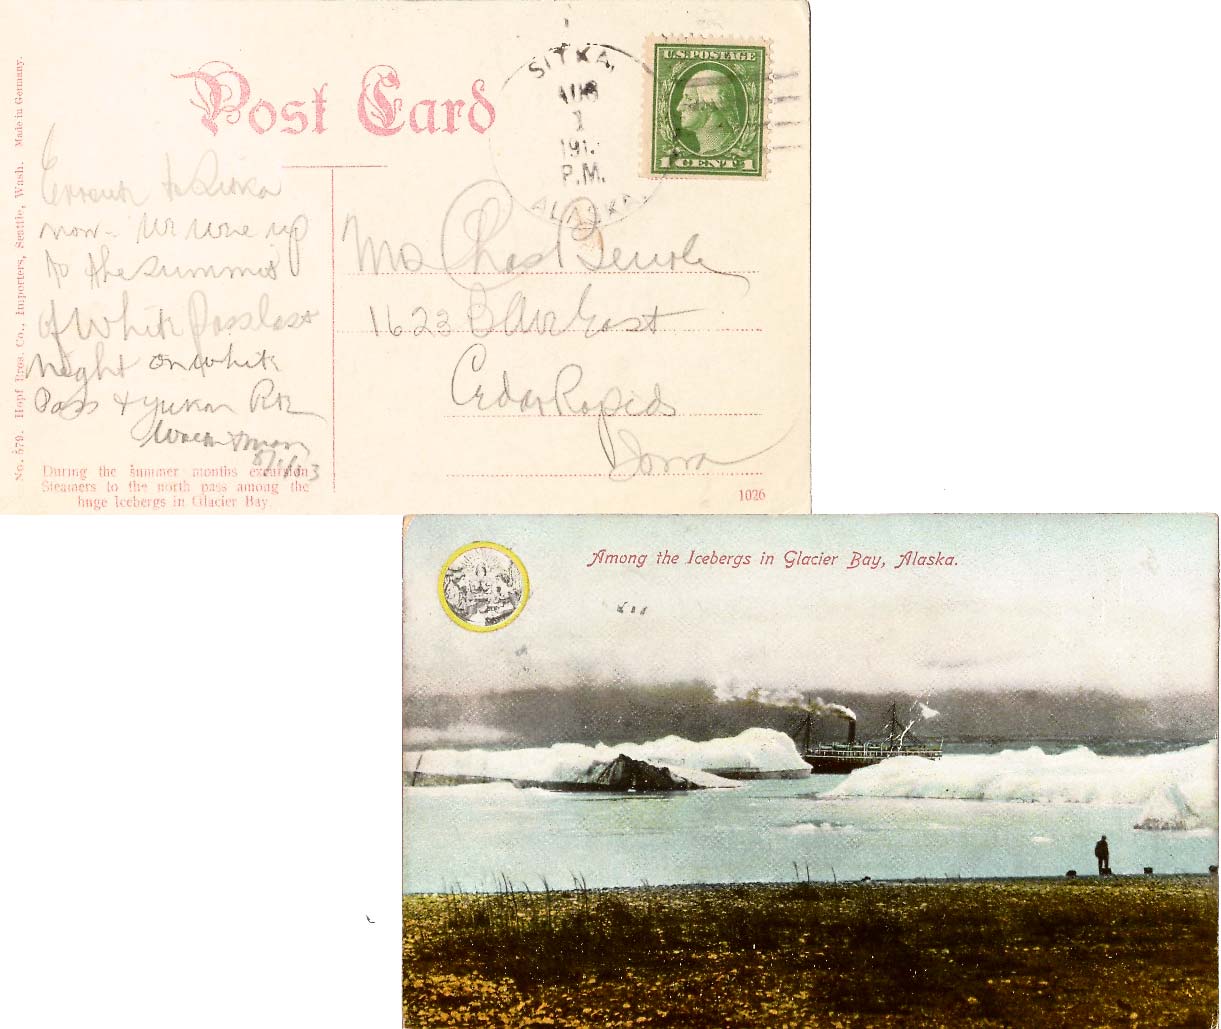 No. 579. Hopf Bros. Co., Importers, Seattle, Wash. Made in Germany.
Post Card
SITKA,
AUG
1
191
P.M.
ALASKA.
U.S. POSTAGE
1 CENT 1
Enroute to Sitka
now - We were up
to the summit
of White Pass last
night on White
Pass & Yukon RR
8/1/13
Chas
1623 B Ave East
Cedar Rapids
Iowa
During the summer months excursion
Steamers to the north pass among the
huge Icebergs in Glacier Bay.
1026
Among the Icebergs in Glacier Bay, Alaska.